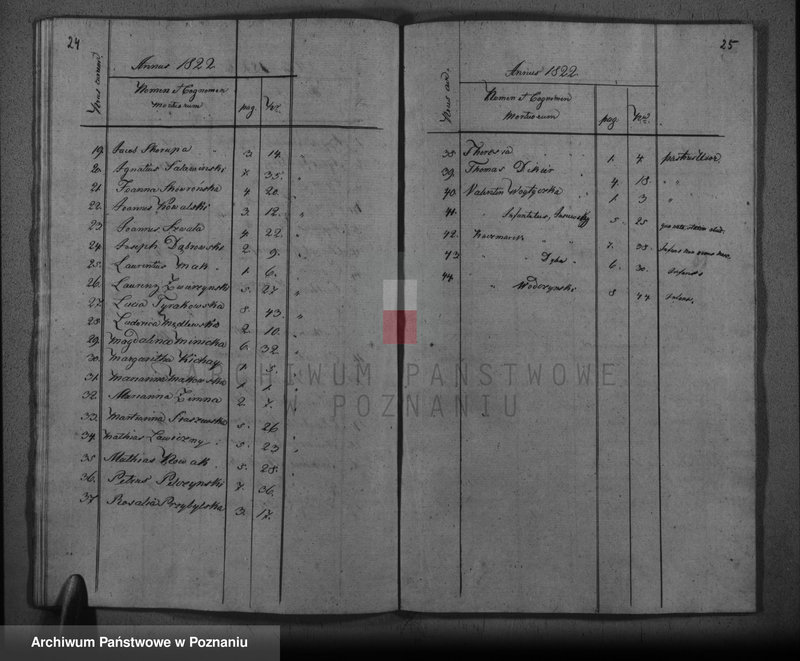 24
Annus 1822
Nomen et Cognomen
mortuorum
pag.
Nr.
19. Jacob Skorupa 3. 14.
20. Ignatius 7. 35.
21. Joanna 4 20.
22. Joannes Kowalski 3. 12.
23 Joannes 4 22.
24. Joseph Dąbrowski 2. 9.
25. Laurentius Mak. 1. 6.
26. Laurenz Zwierzynski 5. 27
27. Lucia Tyrakowska 8. 43.
28 Ludovica 2. 10.
29. Magdalina 6. 32.
30. Margaritha Kichay 1 5.
31. Marianna Makowska 1. 1.
32. Marianna Zimna 2. 7.
33. Marianna Staszewska 5. 26
34. Mathias Ławiczny 5. 23
35 Mathias Nowak 5. 28.
36. Petrus Pelczynski 7. 36.
37 Rosalia Przybylska 3. 17.
25
Annus 1822
Nomen et Cognomen
Mortuorum
pag
38. Theresia 1. 4.
39. Thomas 4. 18.
40. Valentin 1. 3
41. 5. 25
42. Kaczmarek 7. 38.
43 Dęba 6. 30.
44. Wodczynski 8 44
ARCHIWUM PAŃSTWOWE
W POZNANIU
Archiwum Państwowe w Poznaniu